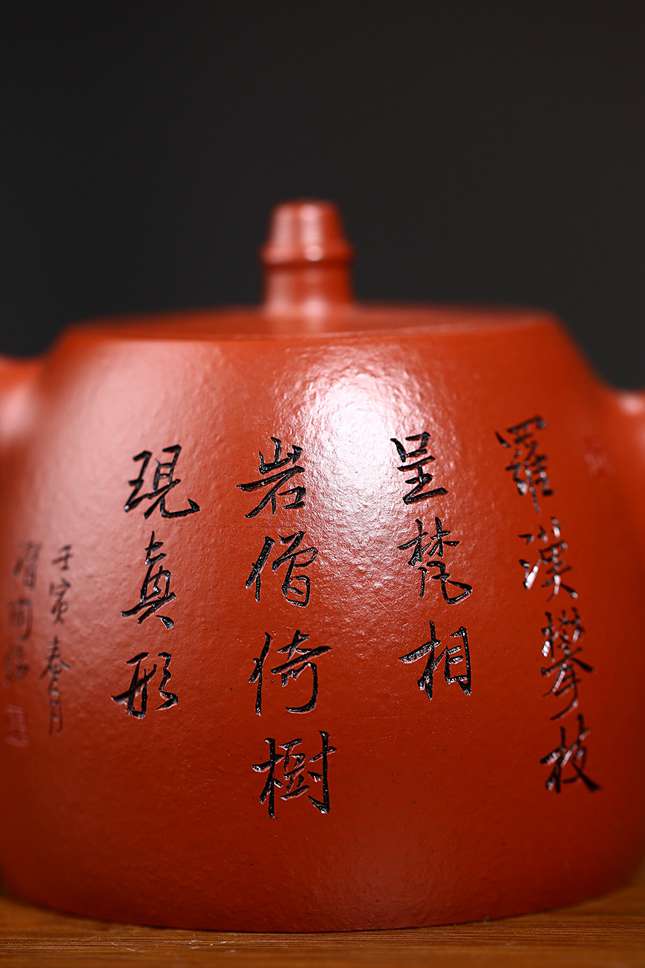 羅漢攀枝
呈梵相
岩僧倚樹
現真形
壬寅春月